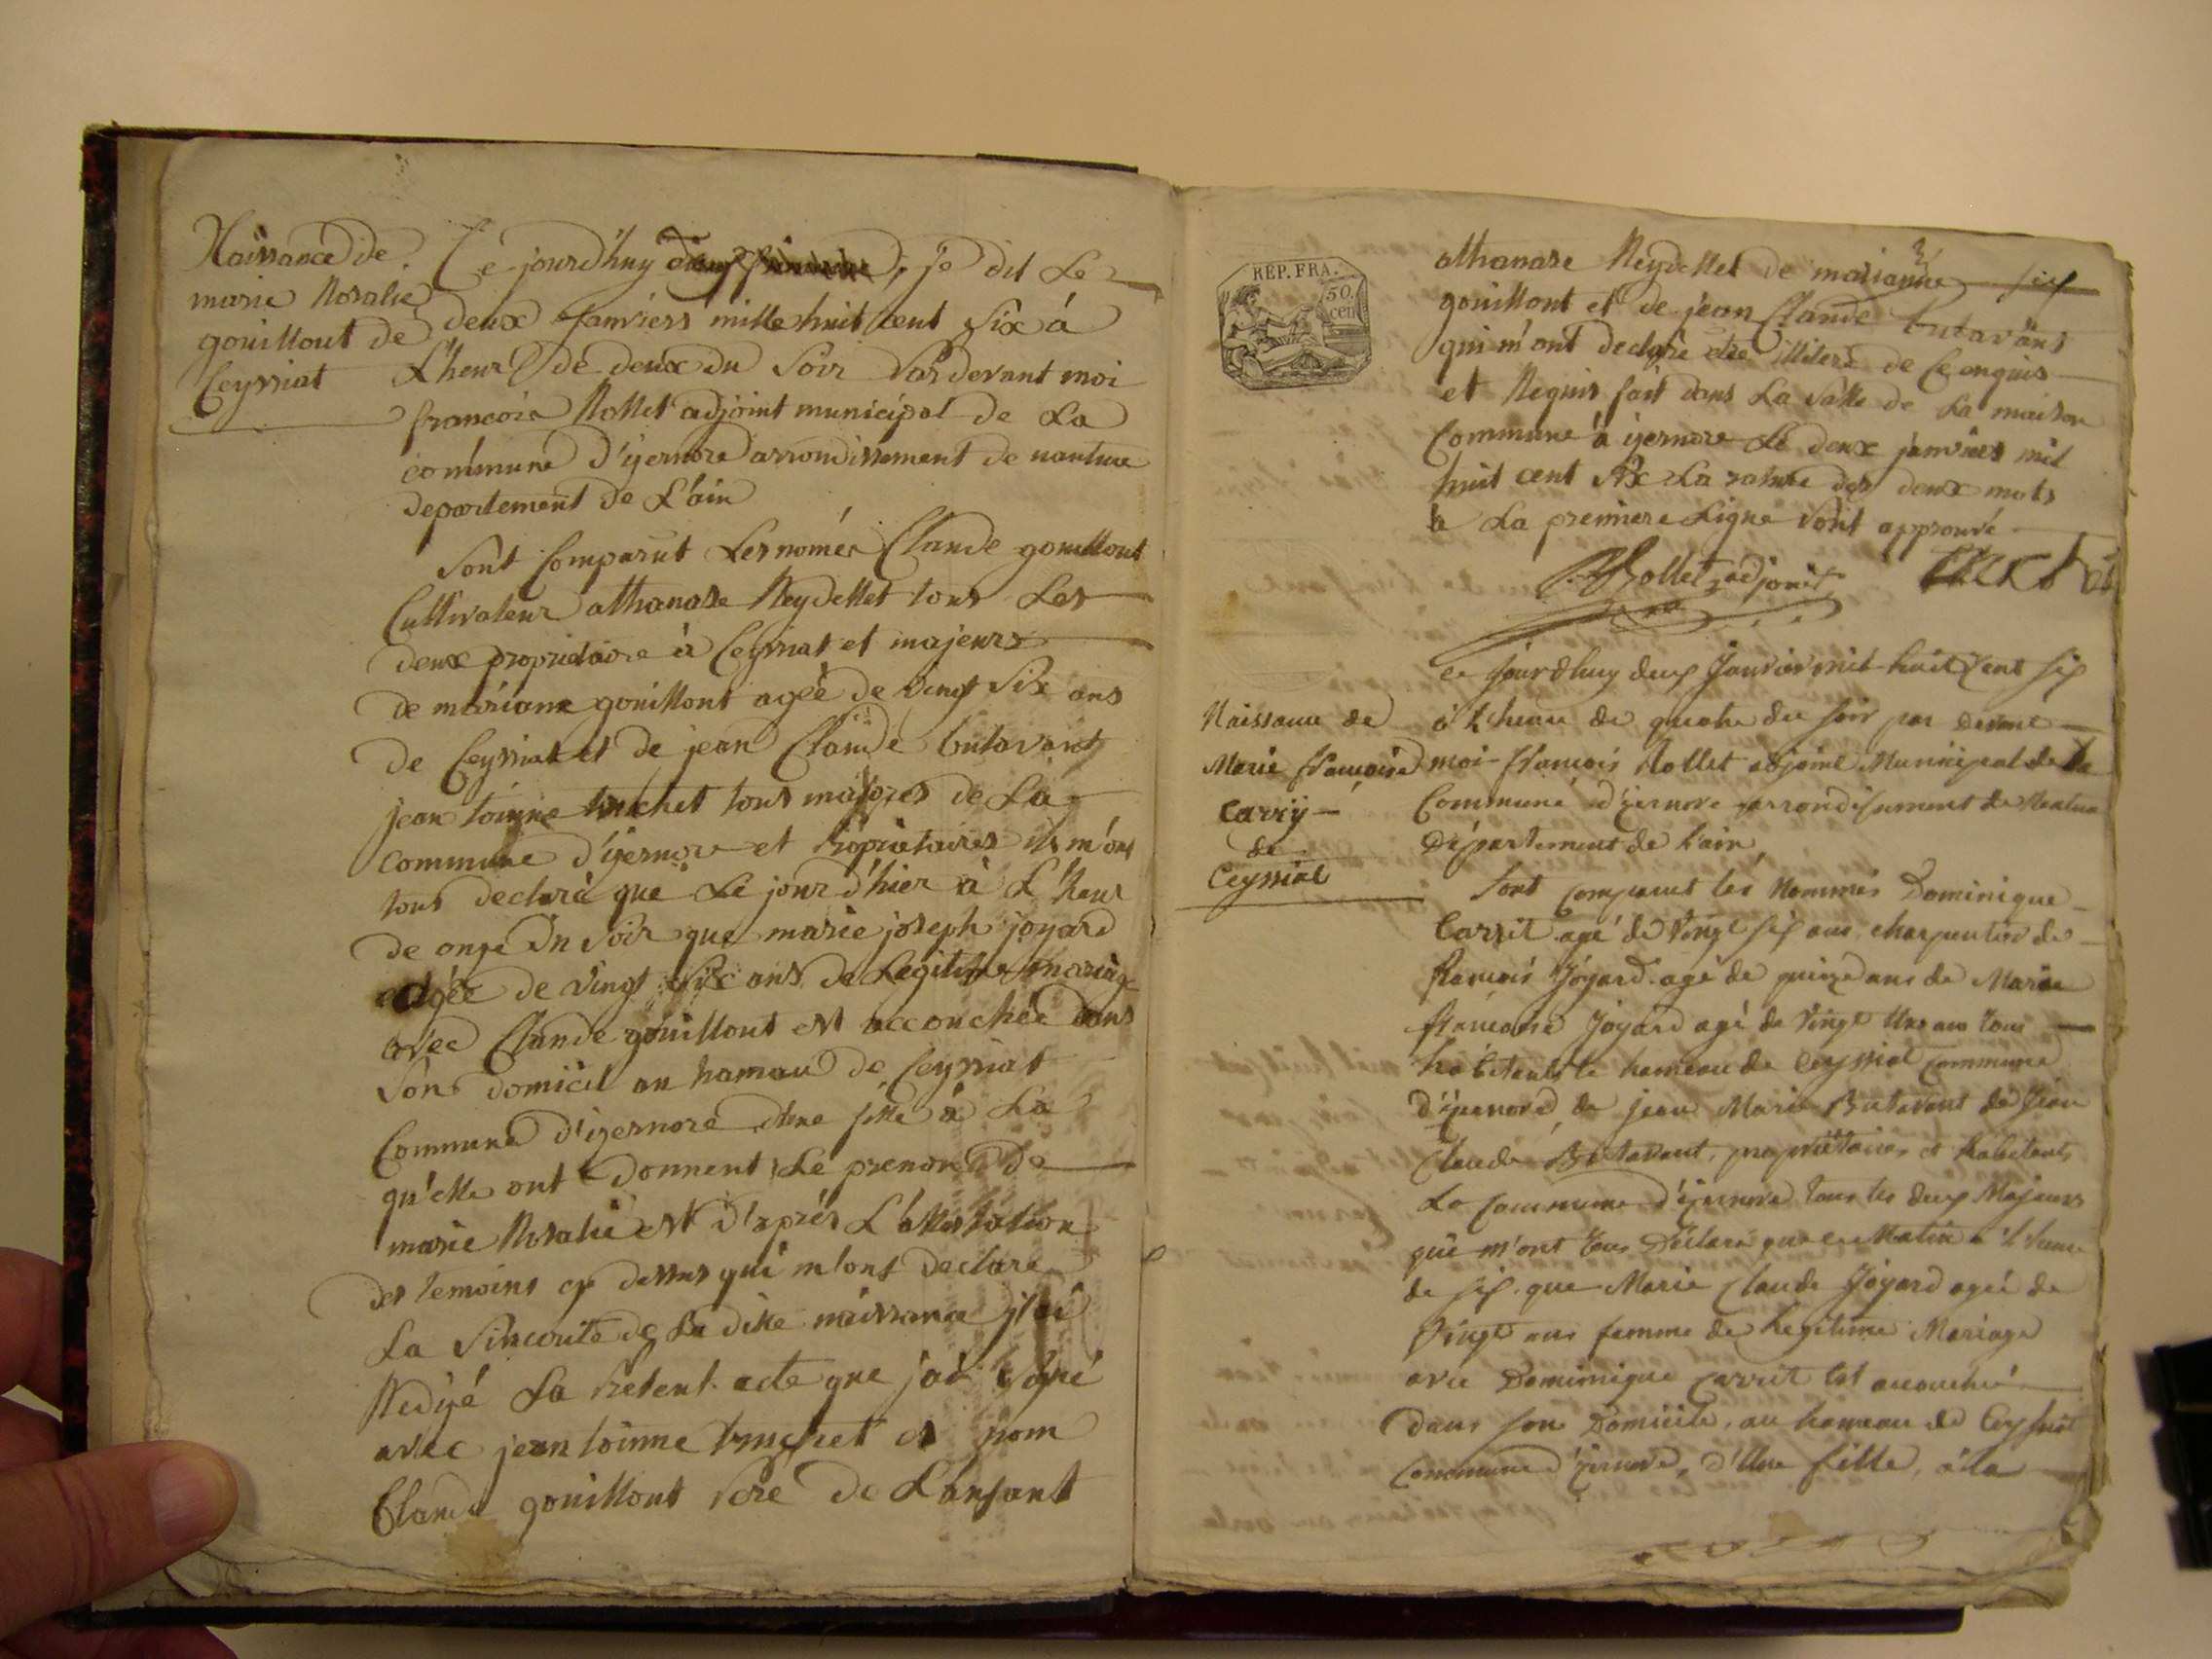 Naissance de
marie Rosalie
gouillout de
Ceyssiat
Ce jourd'huy je dit Le
deux Janviers mille huit cent Six á
L'heur de deux du Soir Pardevant moi
francois Rollet adjoint municipal de La
commune D'yzernore arrondissement de nantua
departement de L'ain
Sont Comparut Les només Claude gouillout
Cultivateur athanase Reydellet tous Les
deux proprietaire à Ceyssiat et majeurs
de mariane gouillout agéé de vingt Six ans
de Ceyssiat et de jean Claude butavant
jean toinne truchet tous majeures de La
commune d'yzernore et Propriétaires ils m'ont
tous declaré que Le jour d'hier à L'heur
de onze Du Soir que marie joseph joyard
agée de vingt Six ans de Legitime mariage
avec Claude gouillout est accouchée dans
Son domicil au hamau de Ceyssiat
Commune d'izernore d'une fille à La
qu'elle ont donnent Le prenom de
marie Rosalie et d'aprés L'attestation
des temoins cy dessus qui m'ont declaré
La Sincerité de La ditte naissance j'ai
Redigé La Present acte que j'ai Signé
avec jean toinne truchet et nom
Claude gouillout Pere de L'anfant
REP. FRA.
50.
cen
athanase Reydellet de marianne
gouillont et de jean Claude butavant
qui m'ont declare etre illiteré de Ce enquis
et Requis fait dans La Salle de La maison
Commune à yzernore Le deux janviers mil
huit cent Six La rature des deux mots
a La premiere Ligne Sont approuvé
Rollet adjoint
Naissance de
Marie francoise
Carrÿ
de
Ceyssiat
Ce jourdhuy deux Janvier mil huit Cent six
à L'heure de quatre du soir par devant
moi francois Rollet adjoint Municipal de la
Commune d'yzernore arrondissement de Nantua
Département de L'ain
Sont Comparut les Nommés Dominique
Carrit agé de Vingt six ans charpentier de
francois Joyard agé de quinze ans de Marie
francoise Joyard agé de Vingt Un ans tous
habitants le hameau de Ceyssiat Commune
d'yzernore, de jean Marie Butavant de Jean
Claude Butavant, propriétaires et habitants
La Commune d'yzernore tous les deux Majeurs
qui m'ont tous Déclaré que ce Matin a l'heure
de six que Marie Claude Joyard ageé de
Vingt ans femme de Legitime Mariage
avec Dominique Carrit Est accouché
dans son Domicile, au hameau de Ceyssiat
Commune d'yzernore, d'Une fille, à la